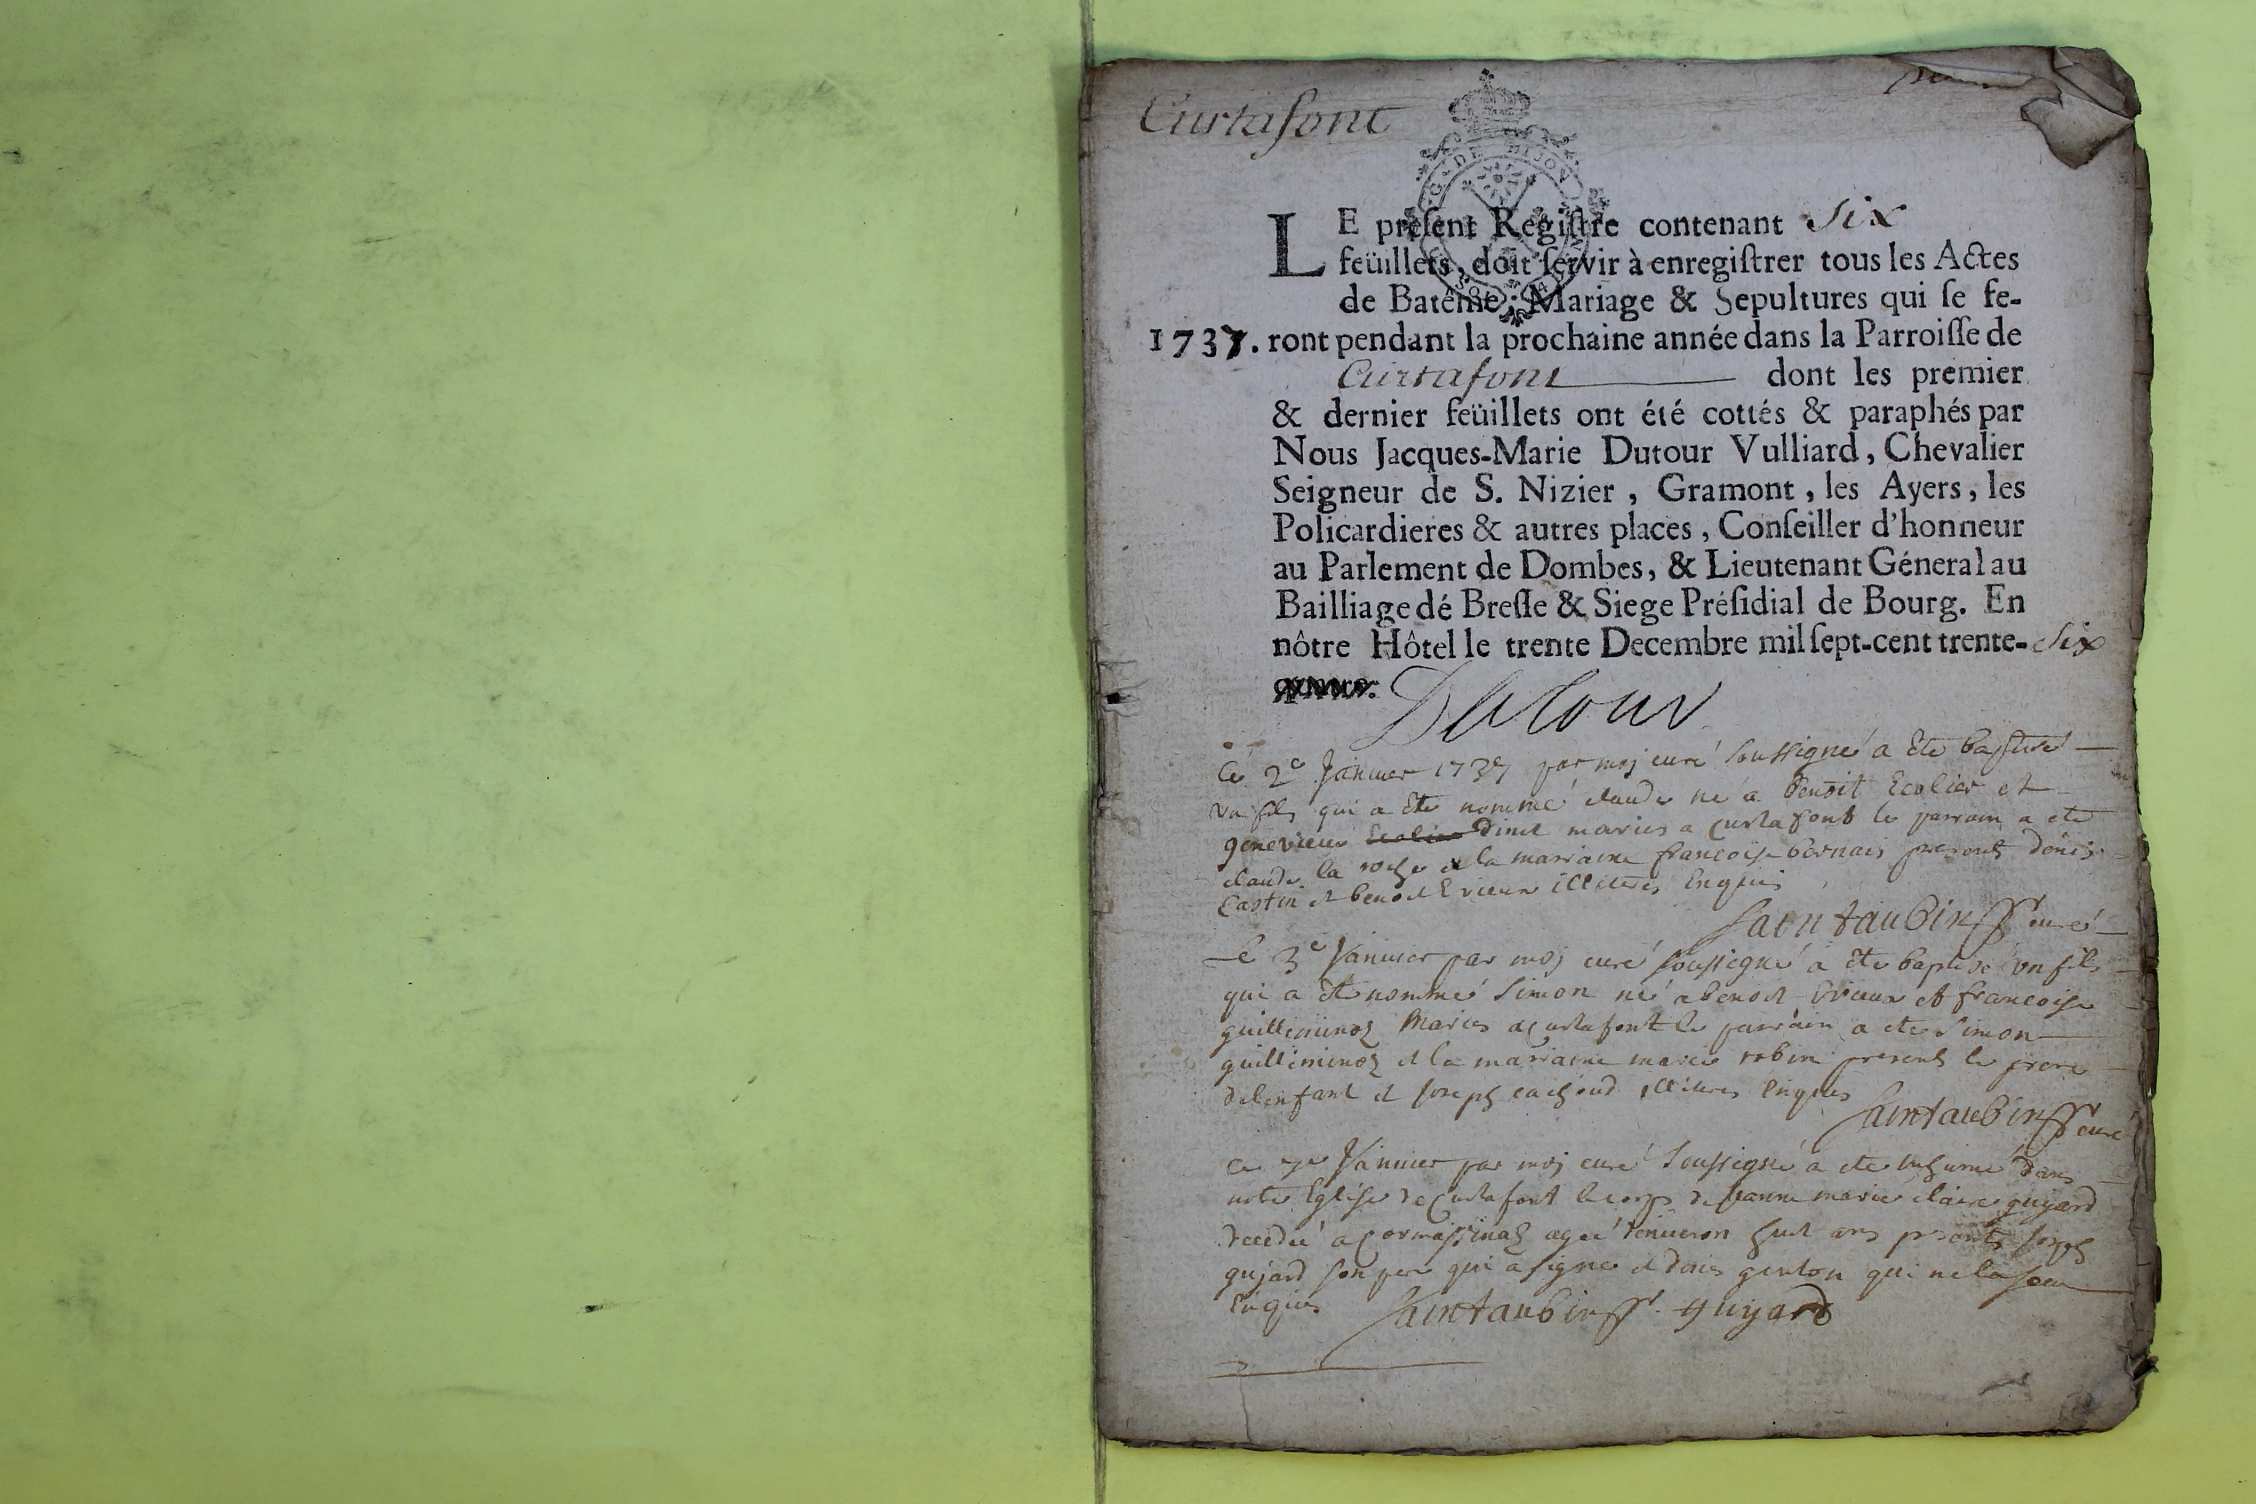 Curtafont
LE preſent Regiſtre contenant Six
feüillets, doit ſervir à enregiſtrer tous les Actes
de Batême, Mariage & Sepultures qui ſe fe-
1737. ront pendant la prochaine année dans la Parroiſſe de
Curtafont dont les premier
& dernier feüillets ont été cottés & paraphés par
Nous Jacques-Marie Dutour Vulliard, Chevalier
Seigneur de S. Nizier, Gramont, les Ayers, les
Policardieres & autres places, Conſeiller d'honneur
au Parlement de Dombes, & Lieutenant Géneral au
Bailliage dé Breſſe & Siege Préſidial de Bourg. En
nôtre Hôtel le trente Decembre mil ſept-cent trente-Six
Dutour
Ce 2e Janvier 1737 par moj curé soussigné a ete baptisé
un fils qui a ete nommé claude né a benoit Ecolier et
genevieve dinet maries a curtafont le parrain a ete
claude la roche et la marraine francoise bernais presents denis
Castin et benoit Evieux illiteres Enquis
Saintaubin curé
Le 3e Janvier par moj curé soussigné a ete baptisé un fils
qui a ete nommé simon né a benoit Evieux et francoise
guilleminoz maries a curtafont le parrain a ete simon
guilleminoz et la marraine marie robin presents le
de lenfant et Joseph illiteres Enquis
Saintaubin curé
Ce 7e Janvier par moj curé soussigné a ete inhumé dans
notre Eglise de curtafont le corps de Jeanne marie claire guyard
decedeé a agée denviron huit ans presents Joseph
gujard son pere qui a signé et denis qui ne la sceu
Enquis Saintaubin guyard